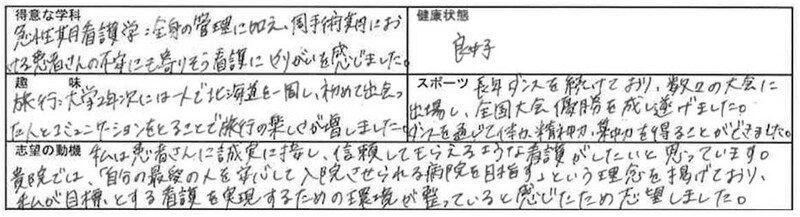 得意な学科
急性期看護学:全身の管理に加え、周手術期にお
ける患者さんの不安にも寄りそう看護にやりがいを感じました。
健康状態
良好
趣　味
旅行:大学2年次には一人で北海道を一周し、初めて出会っ
た人とコミュニケーションをとることで旅行の楽しさが増しました。
スポーツ 長年ダンスを続けており、数々の大会に
出場し、全国大会優勝を成し遂げました。
ダンスを通じて体力、精神力、集中力を得ることができました。
志望の動機 私は患者さんに誠実に接し、信頼してもらえるような看護がしたいと思っています。
貴院では、「自分の最愛の人を安心して入院させられる病院を目指す」という理念を掲げており、
私が目標とする看護を実現するための環境が整っていると感じたため志望しました。